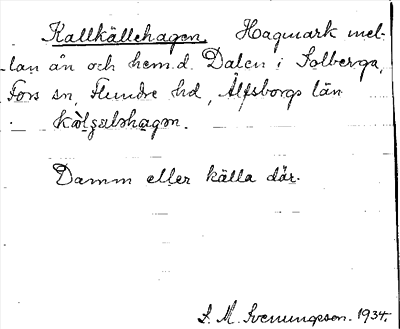 Kallkällehagen. Hagmark mel-
lan ån och hem.d. Dalen i Solberga,
Fors sn, Flundre hd, Älfsborgs län
Damm eller källa där.
S. M. Svenungsson. 1934.